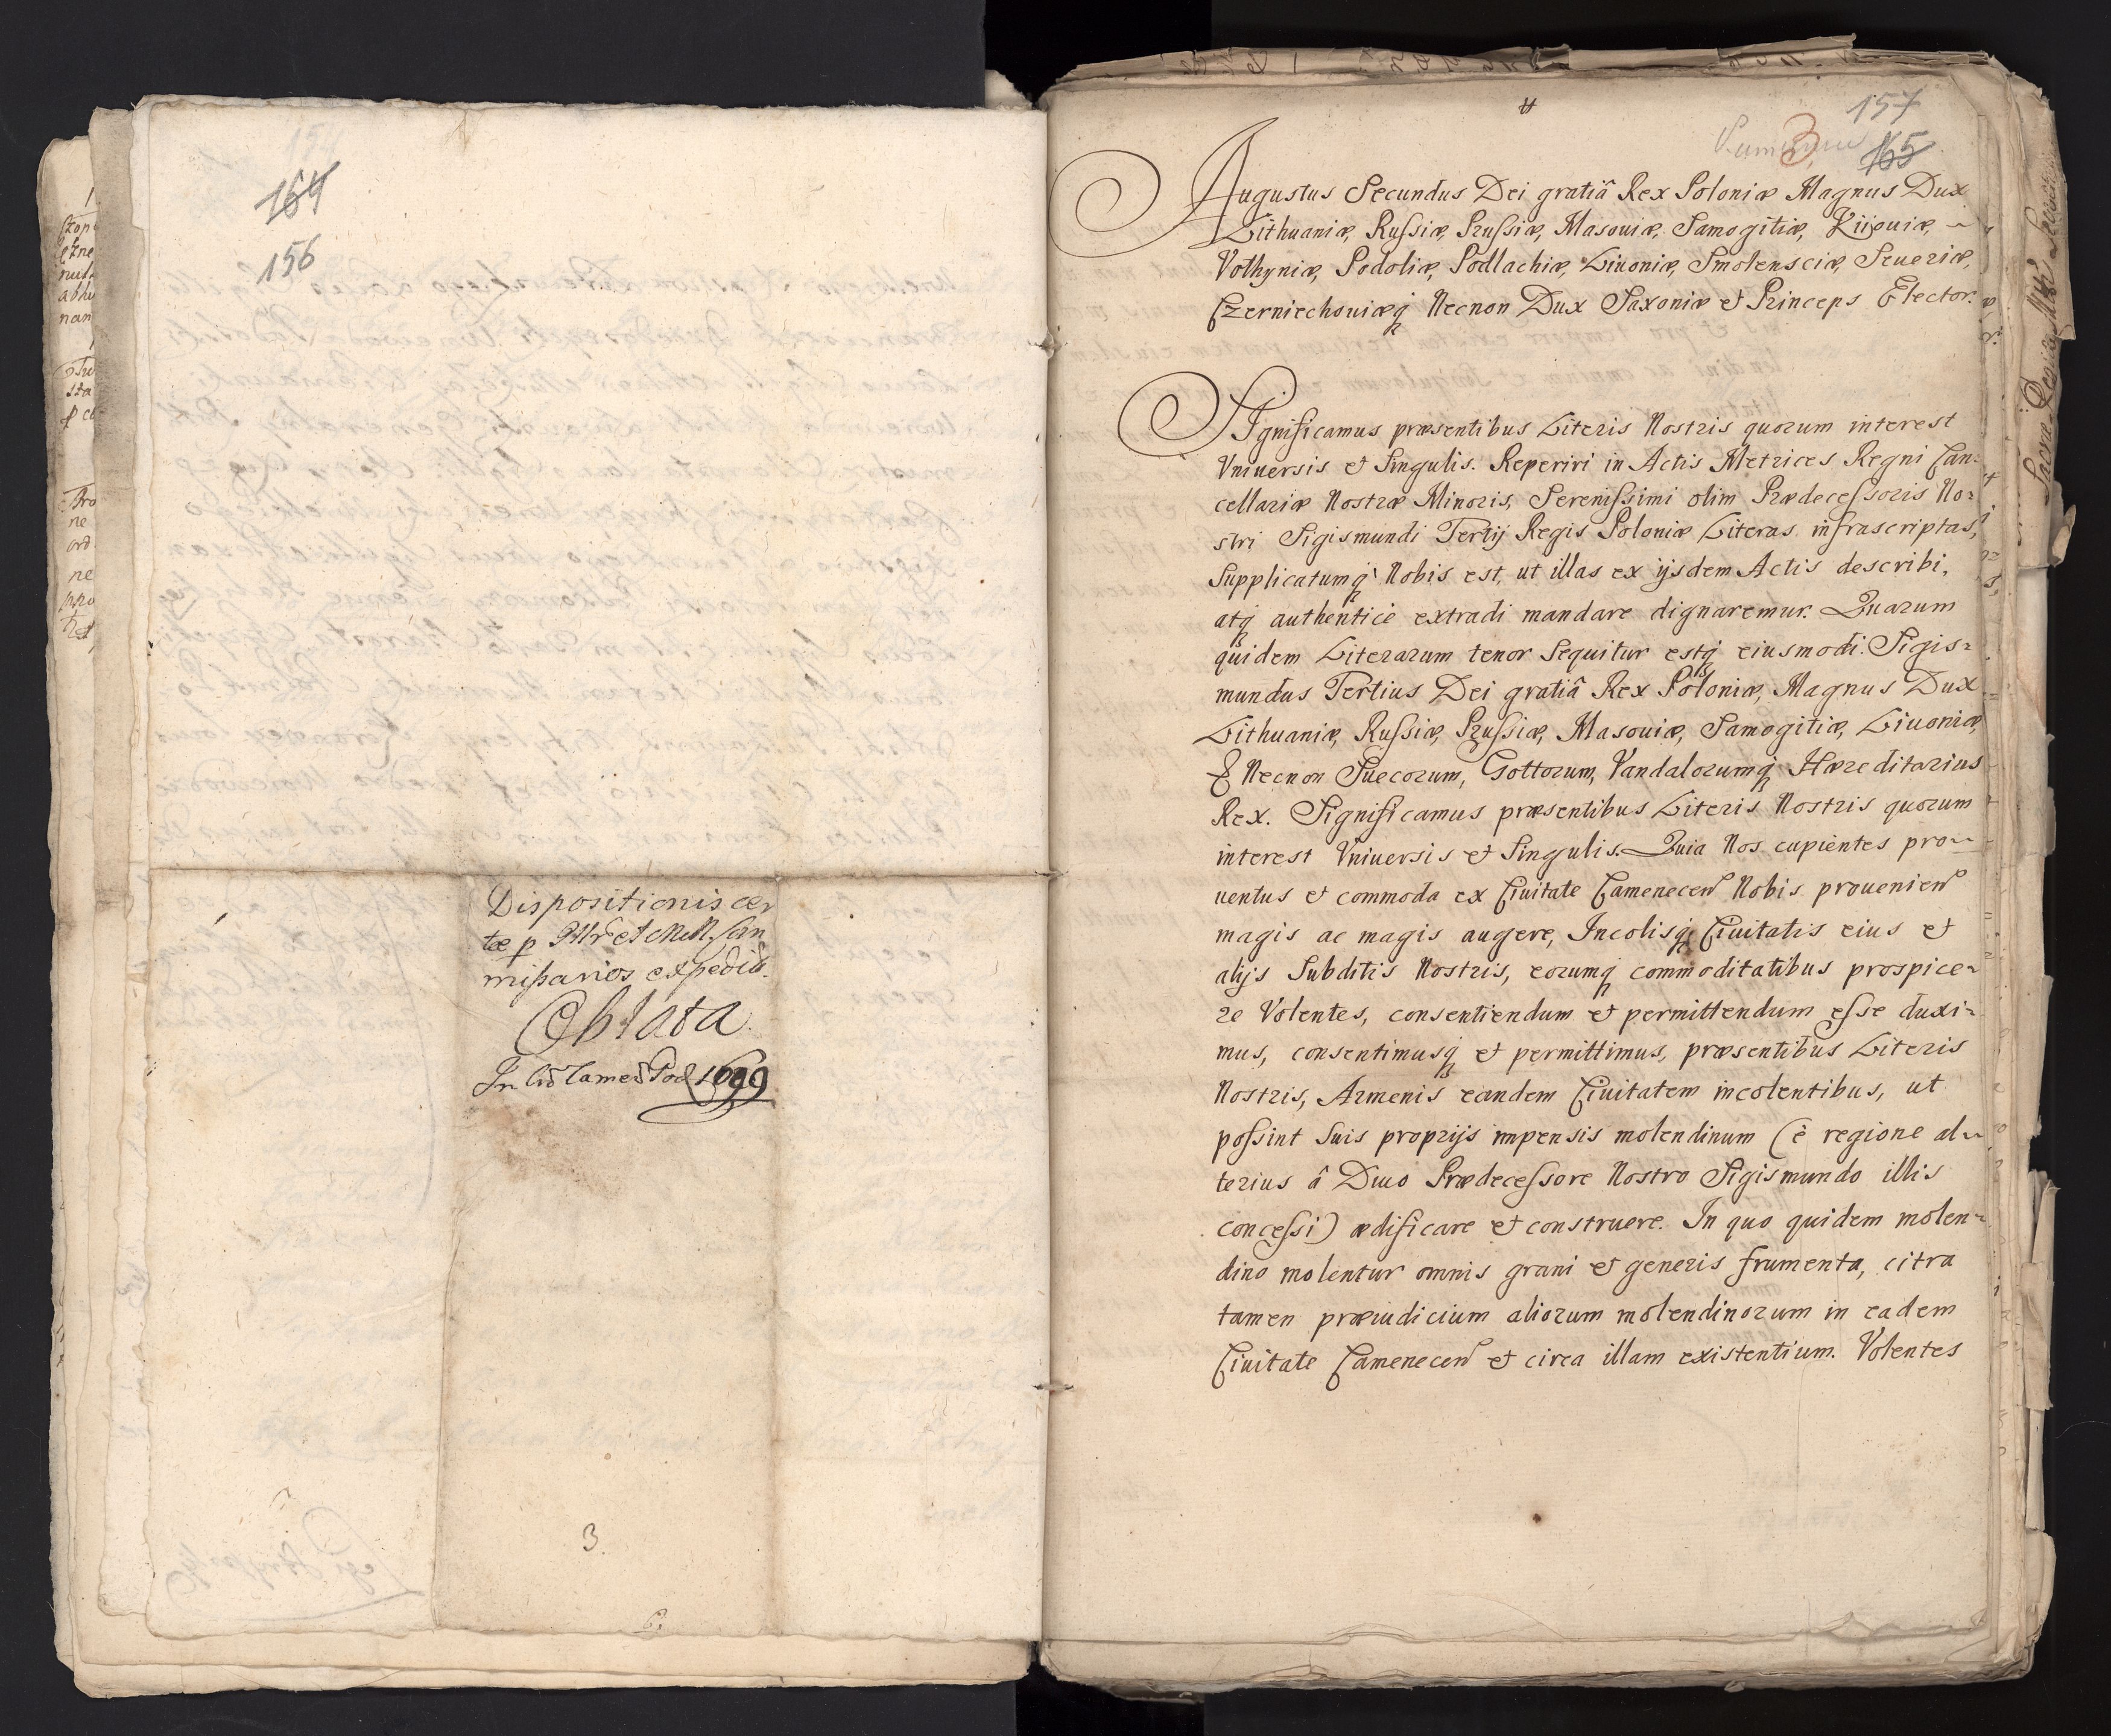 164
156
Dispositionis cer
missarios expedit.
Oblata
1699
3.
6.
157
3
165
Augustus Secundus Dei gratiâ Rex Poloniæ Magnus Dux
Lithuaniæ, Russiæ, Prussiæ, Masouiæ, Samogitiæ, Kiiouiæ,
Volhyniæ, Podoliæ, Podlachiæ, Liuoniæ, Smolensciæ, Seueriæ,
Czerniechouiæq Necnon Dux Saxoniæ et Princeps Elector.
SIgnificamus præsentibus Literis Nostris quorum interest
Vniuersis et Singulis. Reperiri in Actis Metrices Regni Can-
cellariæ Nostræ Minoris, Serenissimi olim Prædecessoris No-
stri Sigismundi Tertij Regis Poloniæ Literas infrascriptas,
Supplicatumq Nobis est, ut illas ex ijsdem Actis describi,
atq authenticè extradi mandare dignaremur. Quarum
quidem Literarum tenor Sequitur estq eiusmodi. Sigis-
mundus Tertius Dei gratiâ Rex Poloniæ, Magnus Dux
Lithuaniæ, Russiæ, Prussiæ, Masouiæ, Samogitiæ, Liuoniæ,
& Necnon Suecorum, Gottorum, Vandalorumq Hæreditarius
Rex. Significamus præsentibus Literis Nostris quorum
interest Vniuersis et Singulis. Quia Nos cupientes pro-
uentus et commoda ex Ciuitate Camenecen Nobis prouenien
magis ac magis augere, Incolisq Ciuitatis eius et
alijs Subditis Nostris, eorumq commoditatibus prospice-
re Volentes, consentiendum et permittendum esse duxi-
mus, consentimusq et permittimus, præsentibus Literis
Nostris, Armenis eandem Ciuitatem incolentibus, ut
possint Suis proprijs impensis molendinum (è regione al-
terius â Diuo Prædecessore Nostro Sigismundo illis
concessi) ædificare et construere. In quo quidem molen-
dino molentur omnis grani et generis frumenta, citra
tamen præiudicium aliorum molendinorum in eadem
Ciuitate Camenecen et circa illam existentium. Volentes